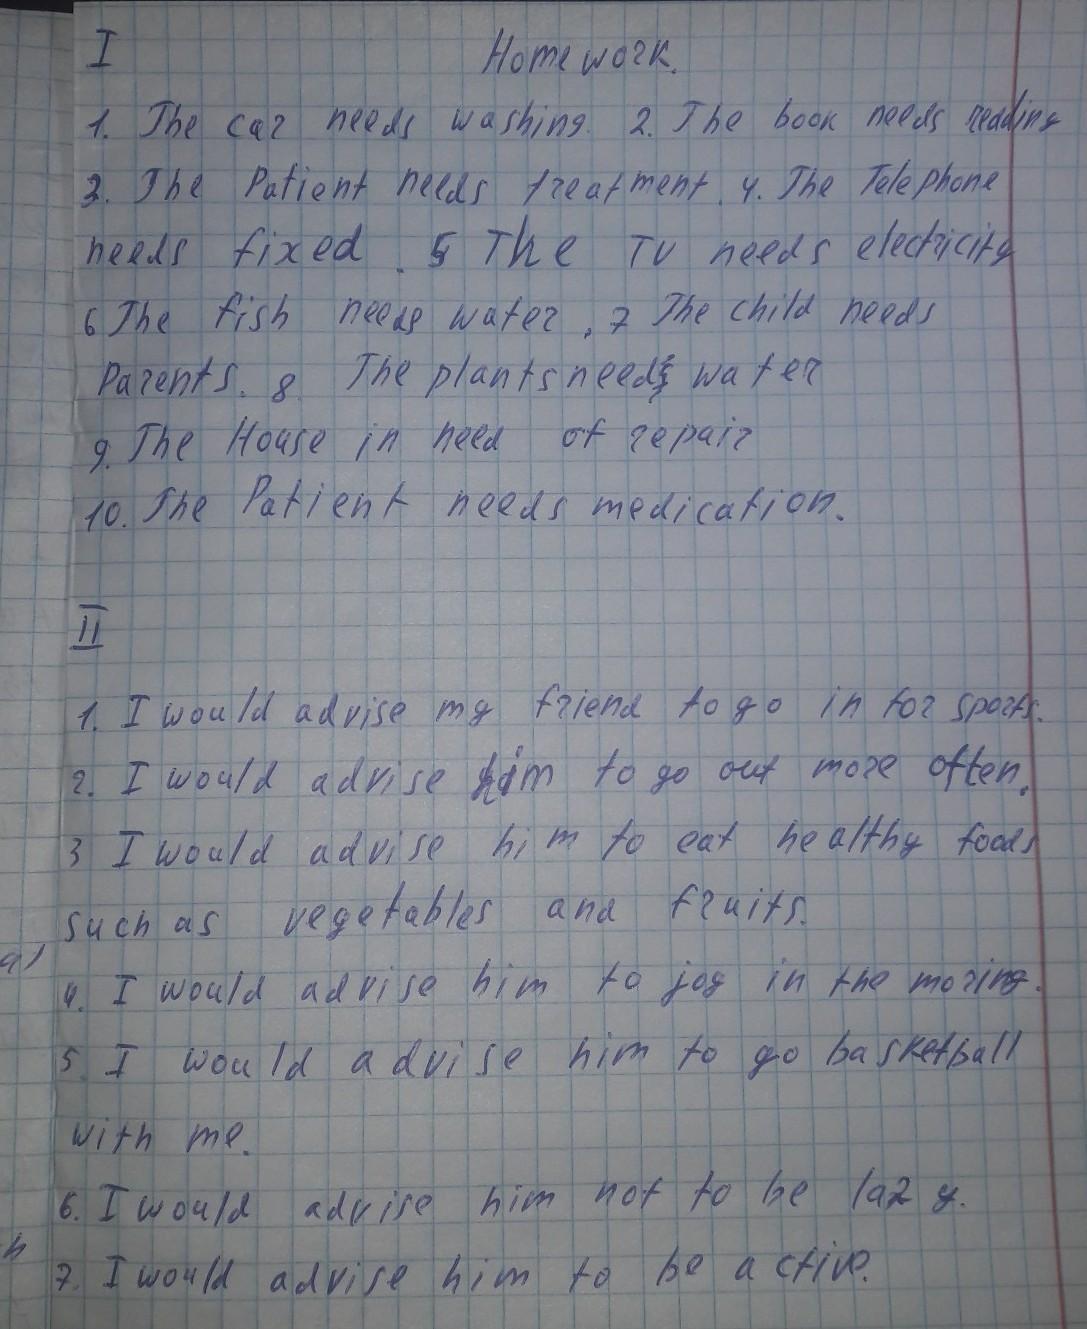 I Homework.
1. The car needs washing. 2. The book needs reading
3. The Patient needs treatment. 4. The Telephone
needs fixed. 5 The TV needs electricity
6 The fish needs water. 7 The child needs
Parents. 8. The plants needs water
9. The House in need of repair
10. The Patient needs medication.
II
1. I would advise my friend to go in for sports.
2. I would advise him to go out more often.
3 I would advise him to eat healthy foods
such as vegetables and fruits.
4. I would advise him to jog in the moring.
5. I would advise him to go basketball
with me.
6. I would advise him not to be lazy.
7. I would advise him to be active.